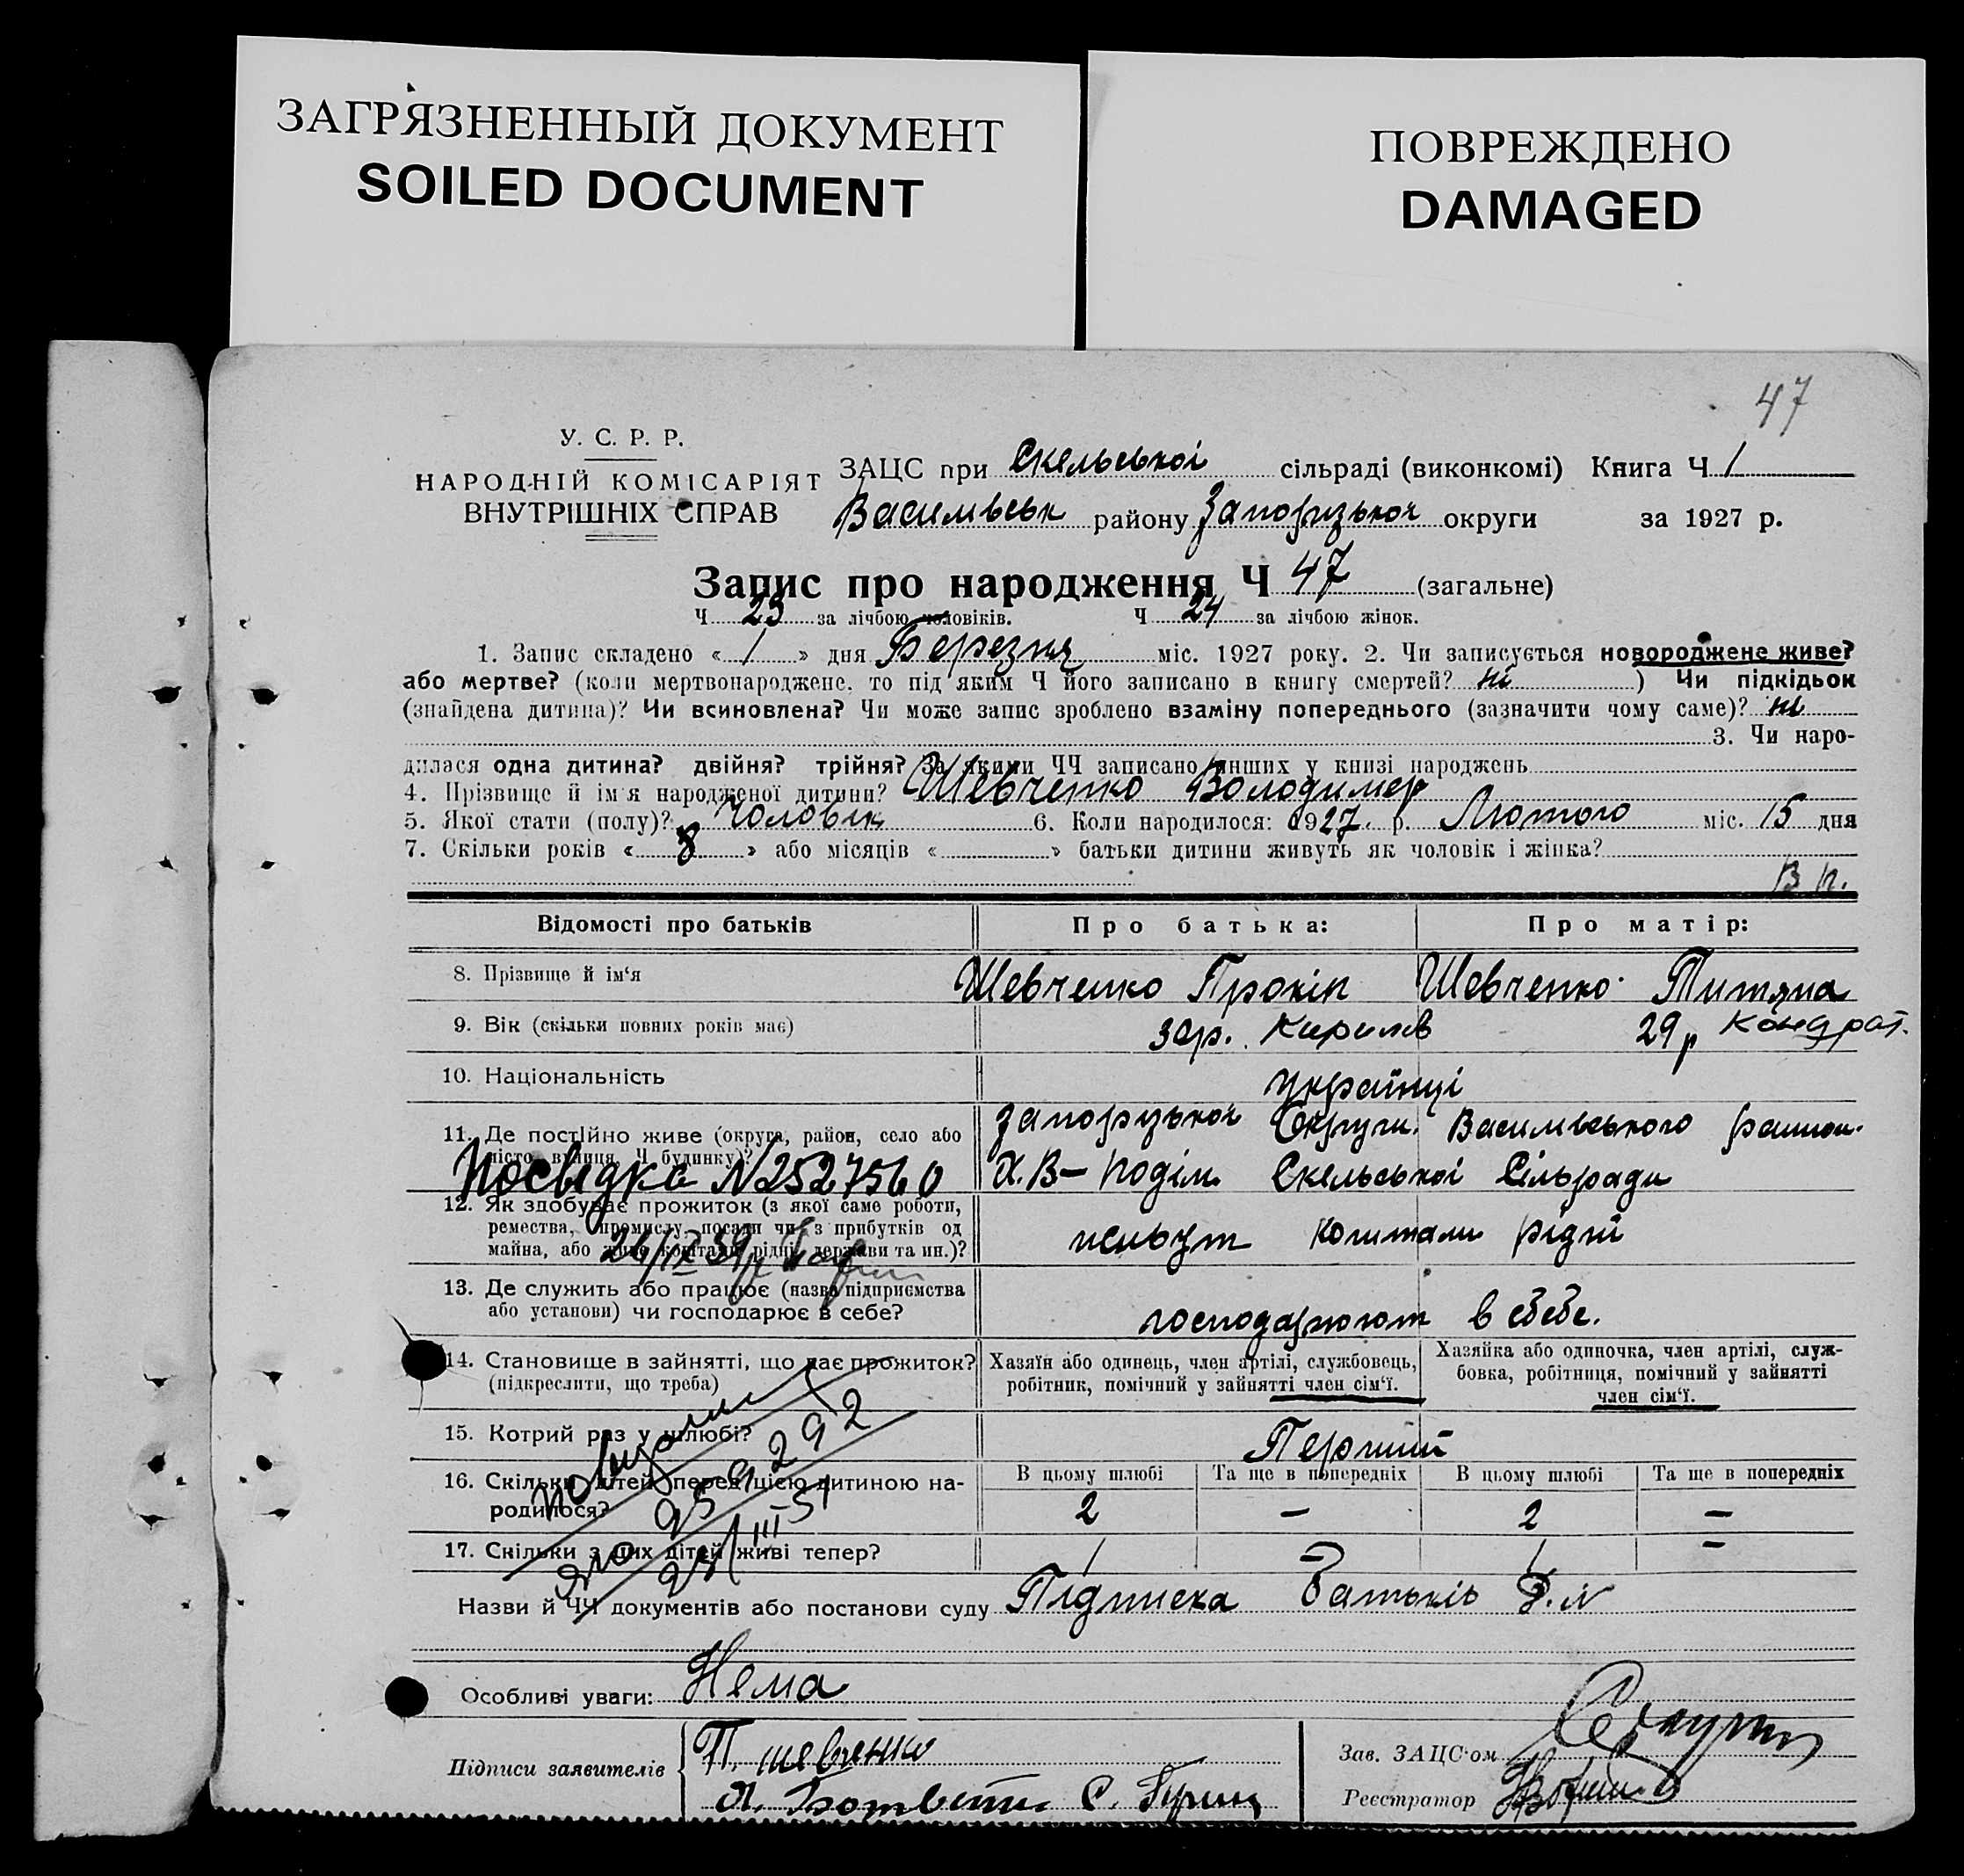 ЗАГРЯЗНЕННЫЙ ДОКУМЕНТ
SOILED DOCUMENT
ПОВРЕЖДЕНО
DAMAGED
47
У. С. Р. Р.
НАРОДНІЙ КОМІСАРІЯТ
ВНУТРІШНІХ СПРАВ
ЗАЦС при Скельської сільраді (виконкомі) Книга Ч 1
Василівськ району Запорізької округи за 1927 р.
Запис про народження Ч 47 (загальне)
Ч 23 за лічбою чоловіків. Ч 24 за лічбою жінок.
1. Запис складено « 1 » дня Березня міс. 1927 року. 2. Чи записується новороджене живе?
або мертве? (коли мертвонароджене, то під яким Ч його записано в книгу смертей? ні ) Чи підкідьок
(знайдена дитина)? Чи всиновлена? Чи може запис зроблено взаміну попереднього (зазначити чому саме)? ні
3. Чи наро-
дилася одна дитина? двійня? трійня? За якими ЧЧ записано инших у книзі народжень
4. Прізвище й ім'я народженої дитини? Шевченко Володимер
5. Якої стати (полу)? Чоловік 6. Коли народилося: 1927 р. Лютого міс. 15 дня
7. Скільки років « 8 » або місяців « » батьки дитини живуть як чоловік і жінка?
Відомості про батьків Про батька: Про матір:
8. Прізвище й ім'я Шевченко Прокіп Шевченко Титяна
9. Вік (скільки повних років має) 30р. Кирилів 29р Кондрат.
10. Національність українці
11. Де постійно живе (округа, район, село або
місто, вулиця, Ч будинку)?
Запорізької Округи. Василівського район.
Х.В– Поділ. Скельської Сільради
Посвідка N2527560
12. Як здобуває прожиток (з якої саме роботи,
ремества, промислу, посади чи з прибутків од
майна, або живе коштами рідні, держави та ин.)?
коштами рідні
13. Де служить або працює (назва підприємства
або установи) чи господарює в себе?
господарюют в себе.
14. Становище в зайнятті, що дає прожиток?
(підкреслити, що треба)
Хазяїн або одинець, член артілі, службовець,
робітник, помічний у зайнятті член сім'ї.
Хазяйка або одиночка, член артілі, служ-
бовка, робітниця, помічний у зайнятті
член сім'ї.
15. Котрий раз у шлюбі? Перший
16. Скільки дітей перед цією дитиною на-
родилося?
В цьому шлюбі Та ще в попередніх В цьому шлюбі Та ще в попередніх
2 – 2 –
17. Скільки з цих дітей живі тепер? 1 – 1 –
Назви й ЧЧ документів або постанови суду Підписка Батьків
Особливі уваги: Нема
Підписи заявителів
П. шевченко
Зав. ЗАЦС'ом
Реєстратор